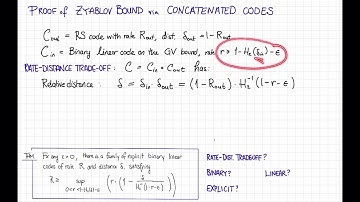 PROOF of ZYABLOV BOUND via CONCATENATED CODES
C_out = RS code with rate R_out, dist. δ_out = 1-R_out
C_in = Binary linear code on the GV bound, rate r ≥ 1-H₂(δ_in)-ε
RATE-DISTANCE TRADE-OFF: C = C_in ∘ C_out has:
Relative distance: δ = δ_in · δ_out = (1-R_out) · H₂⁻¹(1-r-ε)
For any ε>0, there is a family of explicit binary linear
codes of rate R and distance δ, satisfying
R ≥ sup ( r · ( 1 - δ / H₂⁻¹(1-r-ε) ) )
RATE-DIST. TRADEOFF?
BINARY? LINEAR?
EXPLICIT?